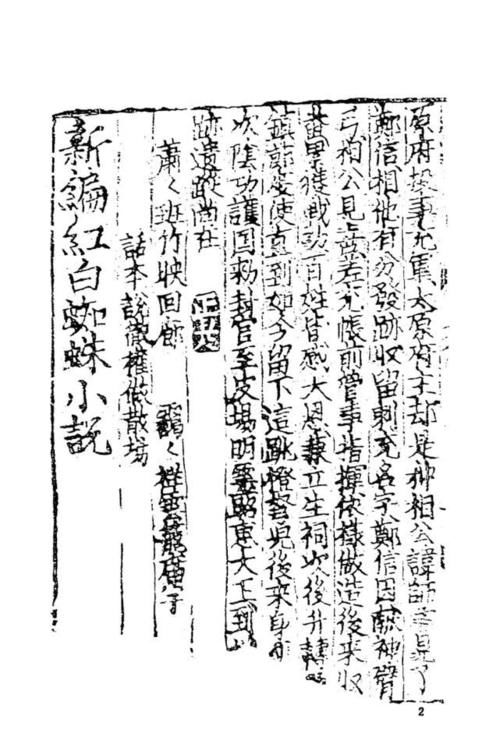 原府投事充軍太原府主却是种相公諱師道見了
鄭信相他有分發跡收留刺充名字鄭信因獻神臂
弓相公見了差充帳前管事指揮依樣做造後來收
番累獲戰功百姓皆感大恩立生祠次後升轉
鎮節度使直到如今留下這跳凳弩兒後來身
次陰功護国勅封官至皮場明靈昭惠大王到
跡遺蹤尚在
蕭々班竹映回郎
話本說徹權做散場
新編紅白蜘蛛小說
2